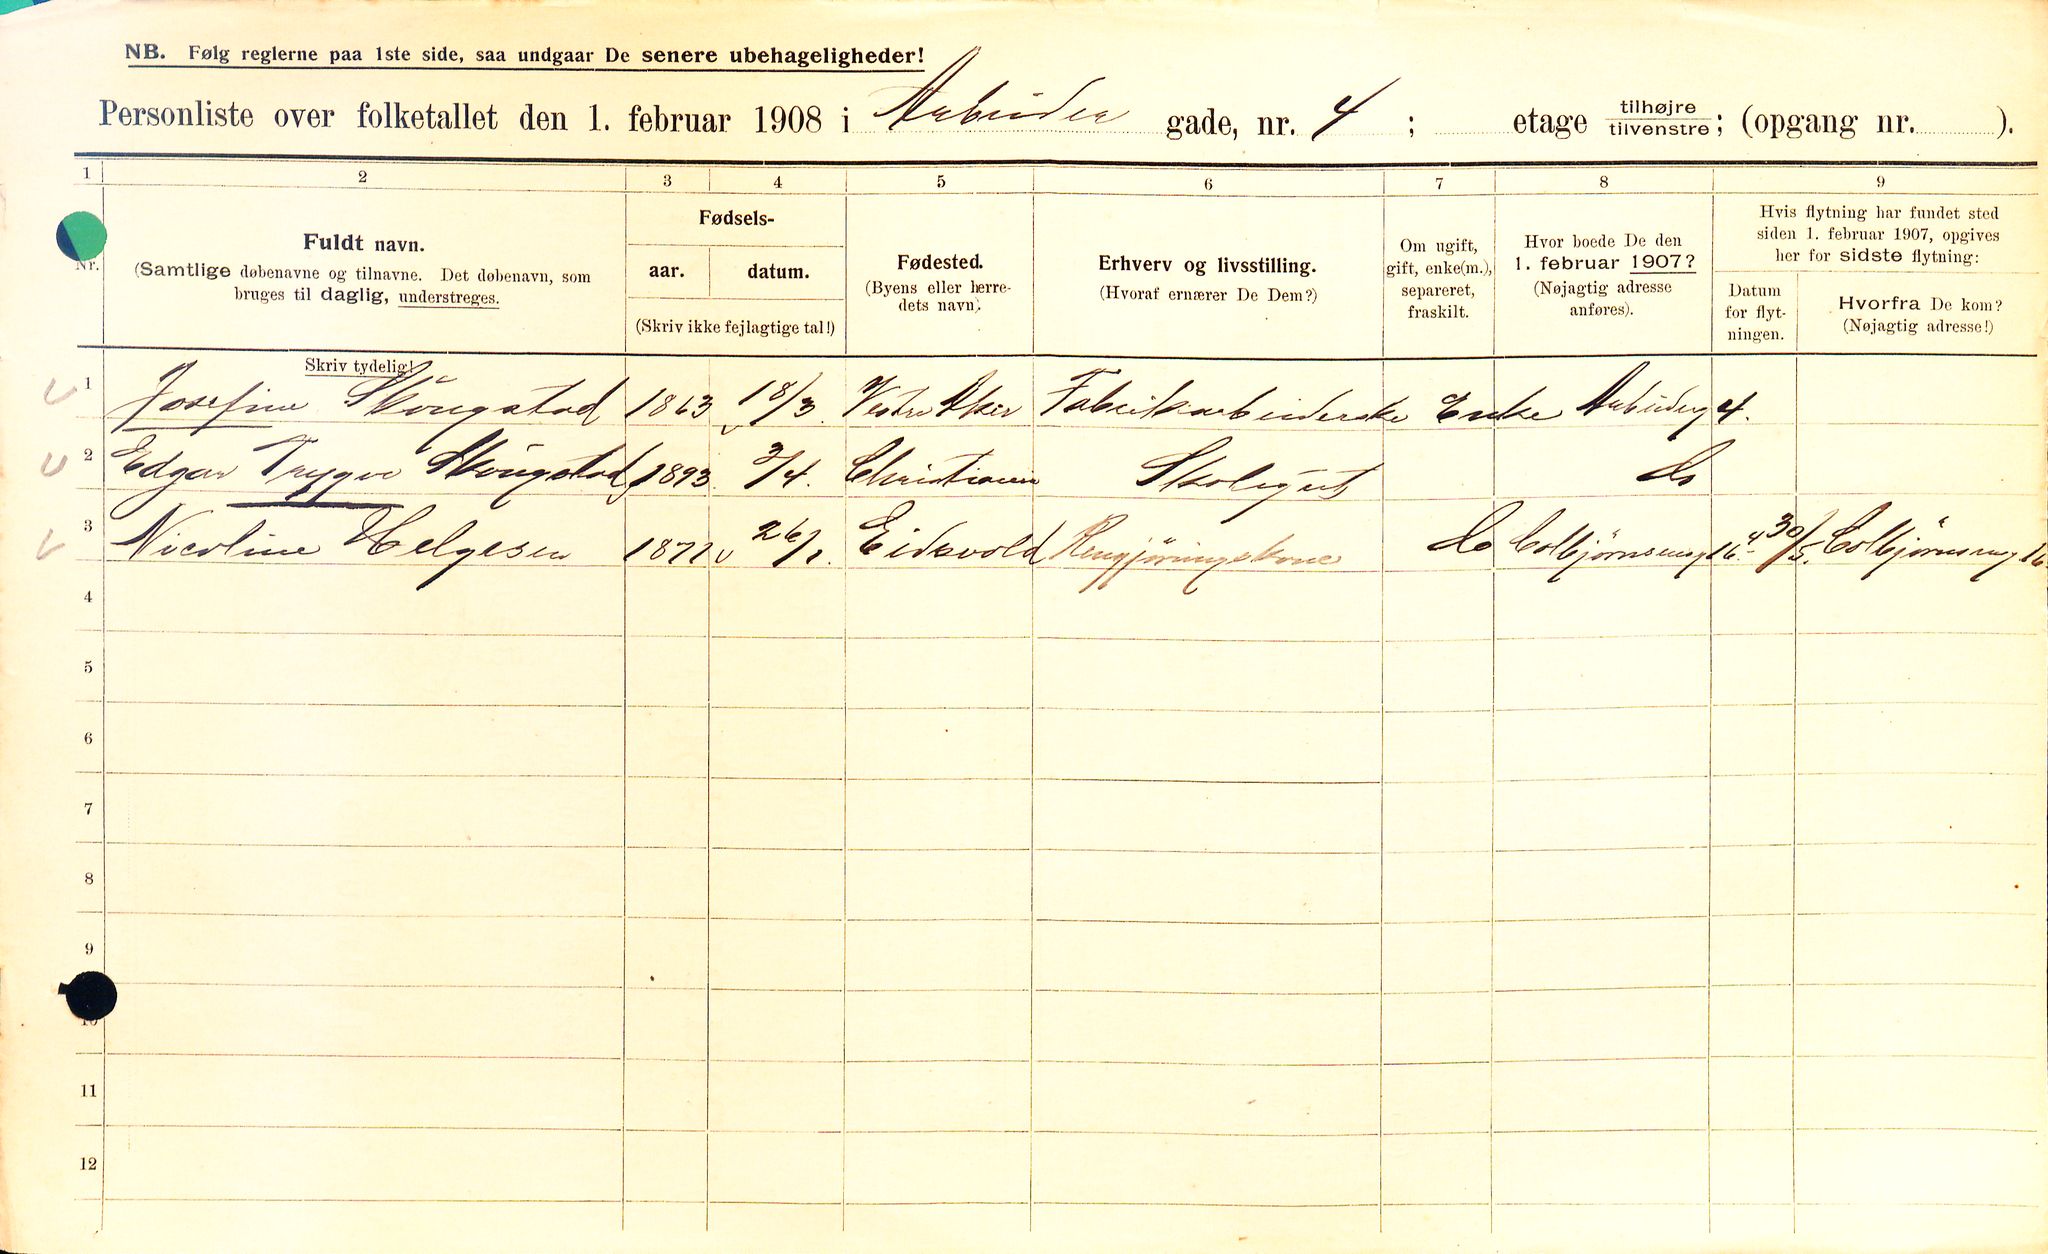 NB. Følg reglerne paa 1ste side, saa undgaar De senere ubehageligheder!
Personliste over folketallet den 1. februar 1908 i Arbeider gade, nr. 4 ; etage tilhøjre/tilvenstre; (opgang nr. ).
1 2 3 4 5 6 7 8 9
Nr.
Fuldt navn.
(Samtlige døbenavne og tilnavne. Det døbenavn, som
bruges til daglig, understreges.
Fødsels-
aar. datum.
(Skriv ikke fejlagtige tal!)
Fødested.
(Byens eller herre-
dets navn).
Erhverv og livsstilling.
(Hvoraf ernærer De Dem?)
Om ugift,
gift, enke(m.),
separeret,
fraskilt.
Hvor boede De den
1. februar 1907?
(Nøjagtig adresse
anføres).
Hvis flytning har fundet sted
siden 1. februar 1907, opgives
her for sidste flytning:
Datum
for flyt-
ningen.
Hvorfra De kom?
(Nøjagtig adresse!)
Skriv tydelig!
1 Josefine Skougstad 1863 18/3. Vestre Aker Fabrikarbeiderske Enke Arbiderg 4.
2 Edgar Trygve Skougstad 1893 3/4. Christiania Skolegut do
3 Nicoline Helgesen 1871 26/1. Eidsvold Rengjøringskone do Colbjørnsensg 16. 30/5. Colbjørnsensg 16
4
5
6
7
8
9
10
11
12